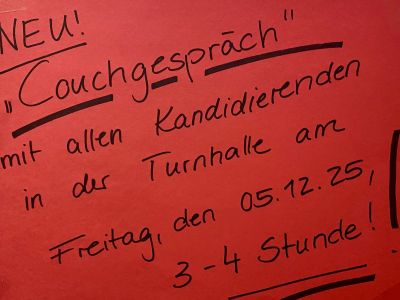 NEU!
„Couchgespräch“
mit allen Kandidierenden
in der Turnhalle am
Freitag, den 05.12.25,
3-4 Stunde!